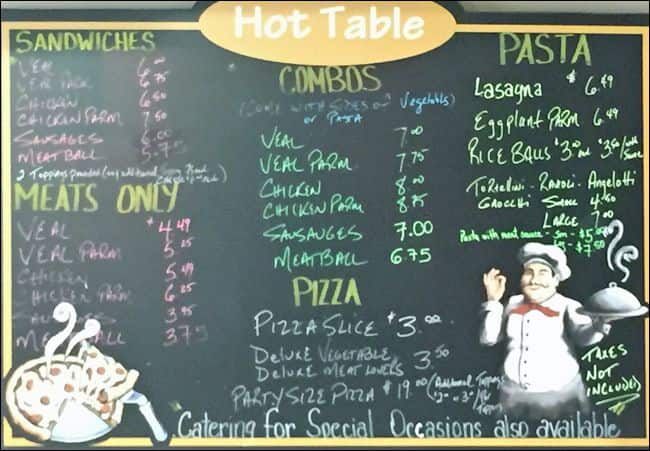 Hot Table
SANDWICHES
VEAL 6.00
VEAL PARM 6.75
CHICKEN 6.50
CHICKEN PARM 7.50
SAUSAGES 6.00
MEATBALL 5.75
2 Toppings provided (any additional
MEATS ONLY
VEAL $4.49
VEAL PARM 5.25
CHICKEN 5.49
CHICKEN PARM 6.25
SAUSAGES 3.95
MEATBALL 3.75
COMBOS
(COME WITH SIDES OF Vegetables)
or PASTA
VEAL 7.00
VEAL PARM 7.75
CHICKEN 8.00
CHICKEN PARM 8.75
SAUSAUGES 7.00
MEATBALL 6.75
PIZZA
PIZZA SLICE $3.00
DELUXE VEGETABLE
DELUXE MEAT LOVERS 3.50
PARTY SIZE PIZZA $19.00 (Additional Toppings
"2" or "3"
Toppings
PASTA
Lasagna $6.49
Eggplant PARM 6.49
RICE BALLS $3.00 and $3.50 with Sauce
TORTELINI - RAVIOLI - Angelotti
GNOCCHI Small 4.50
LARGE 7.00
Pasta with meat sauce - Sm - $5.00
Lg - $7.50
TAXES
NOT
INCLUDED
Catering for Special Occasions also available